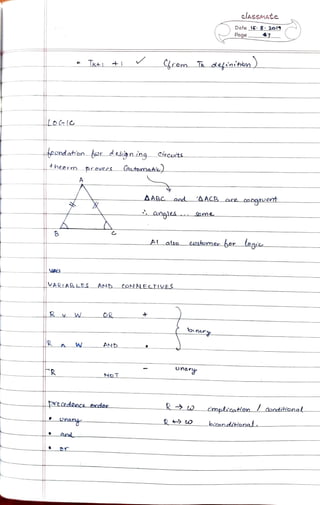 classmate
Date 16-8-2019
Page 47
• Tk+1 + 1 ✓ (from Tk definition)
LOGIC
foundation for designing circuits
theorm provers (automatic)
A
∆ABC and ∆ACB are congruent
∴ angles ... same
B C
AI also customer for logic
VARIABLES AND CONNECTIVES
R ∨ W OR +
binary
R ∧ W AND •
¬R NOT – unary
precedence order R → W implication / conditional
• unary R ↔ W biconditional.
• and
• or